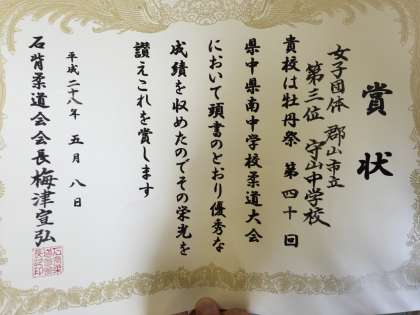 賞状
女子団体 郡山市立
第三位 守山中学校
貴校は牡丹祭 第四十回
県中県南中学校柔道大会
において頭書のとおり優秀な
成績を収めたのでその栄光を
讃えこれを賞します
平成二十八年 五月 八日
石背柔道会会長梅津宣弘